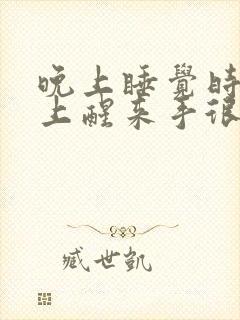 晚上睡覺時
上醒來手很
臧世凱